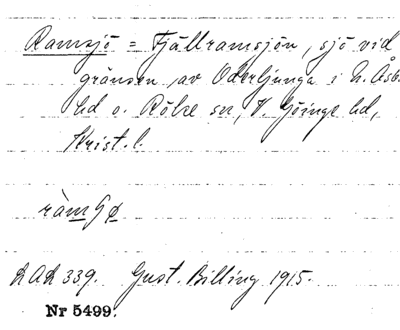 Ramsjö = Fjällramsjön, sjö vid
gränsen av Oderljunga i N. Åsbo
hd o. Röke sn, V. Göinge hd,
Krist. l.
ràmʃø
LAL 339. Gust. Billing 1915.
Nr 5499.